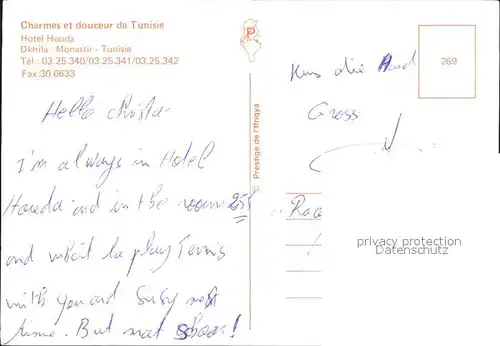 Charmes et douceur de Tunisie
Hotel Houda
Dkhila Monastir - Tunisie
Tél.: 03.25.340/03.25.341/03.25.342
Fax: 30 6633
Hello Christa
I'm always in Hotel
Houda and in the room 251
and want to play Tennis
with you and Susy next
time. But not
Prestige de l'Ifriqya
P
269
Kuss die Hand
Gross
privacy protection
Datenschutz